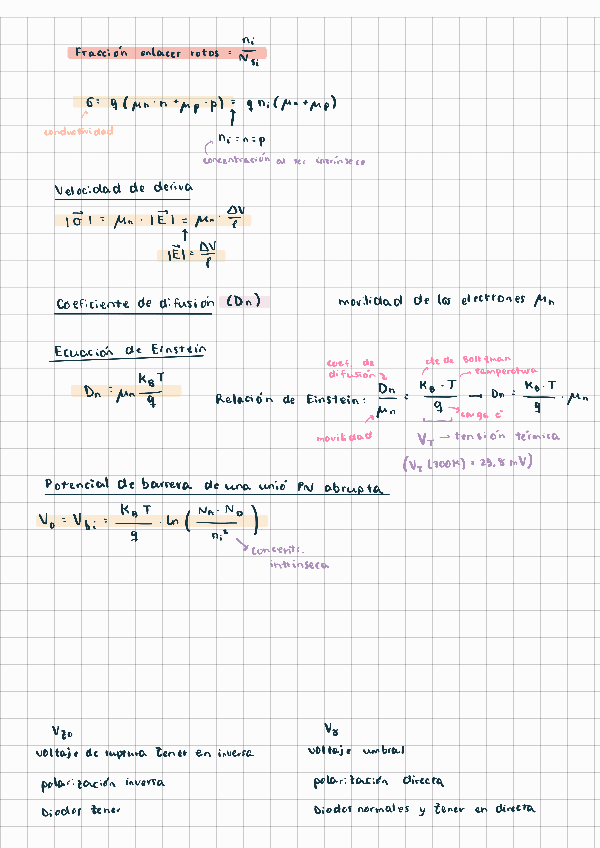 Fracción enlaces rotos = ni / Nsi
σ = q (μn · n + μp · p) = q ni (μn + μp)
conductividad
ni = n = p
concentración al ser intrínseco
Velocidad de deriva
|σ⃗| = μn · |E⃗| = μn · ΔV / l
|E⃗| = ΔV / l
Coeficiente de difusión (Dn)
movilidad de los electrones μn
Ecuación de Einstein
Dn = μn KB T / q
Relación de Einstein: Dn / μn = KB · T / q → Dn = KB · T / q · μn
coef. de difusión
cte de Boltzman
temperatura
carga e⁻
movilidad
VT → tensión térmica
(VT (300K) = 25,8 mV)
Potencial de barrera de una unió PN abrupta
Vo = Vbi = KB T / q · ln ( NA · ND / ni² )
concentr. intrínseca
Vzo
voltaje de ruptura Zener en inversa
polarización inversa
Diodos Zener
Vγ
voltaje umbral
polarización directa
Diodos normales y Zener en directa